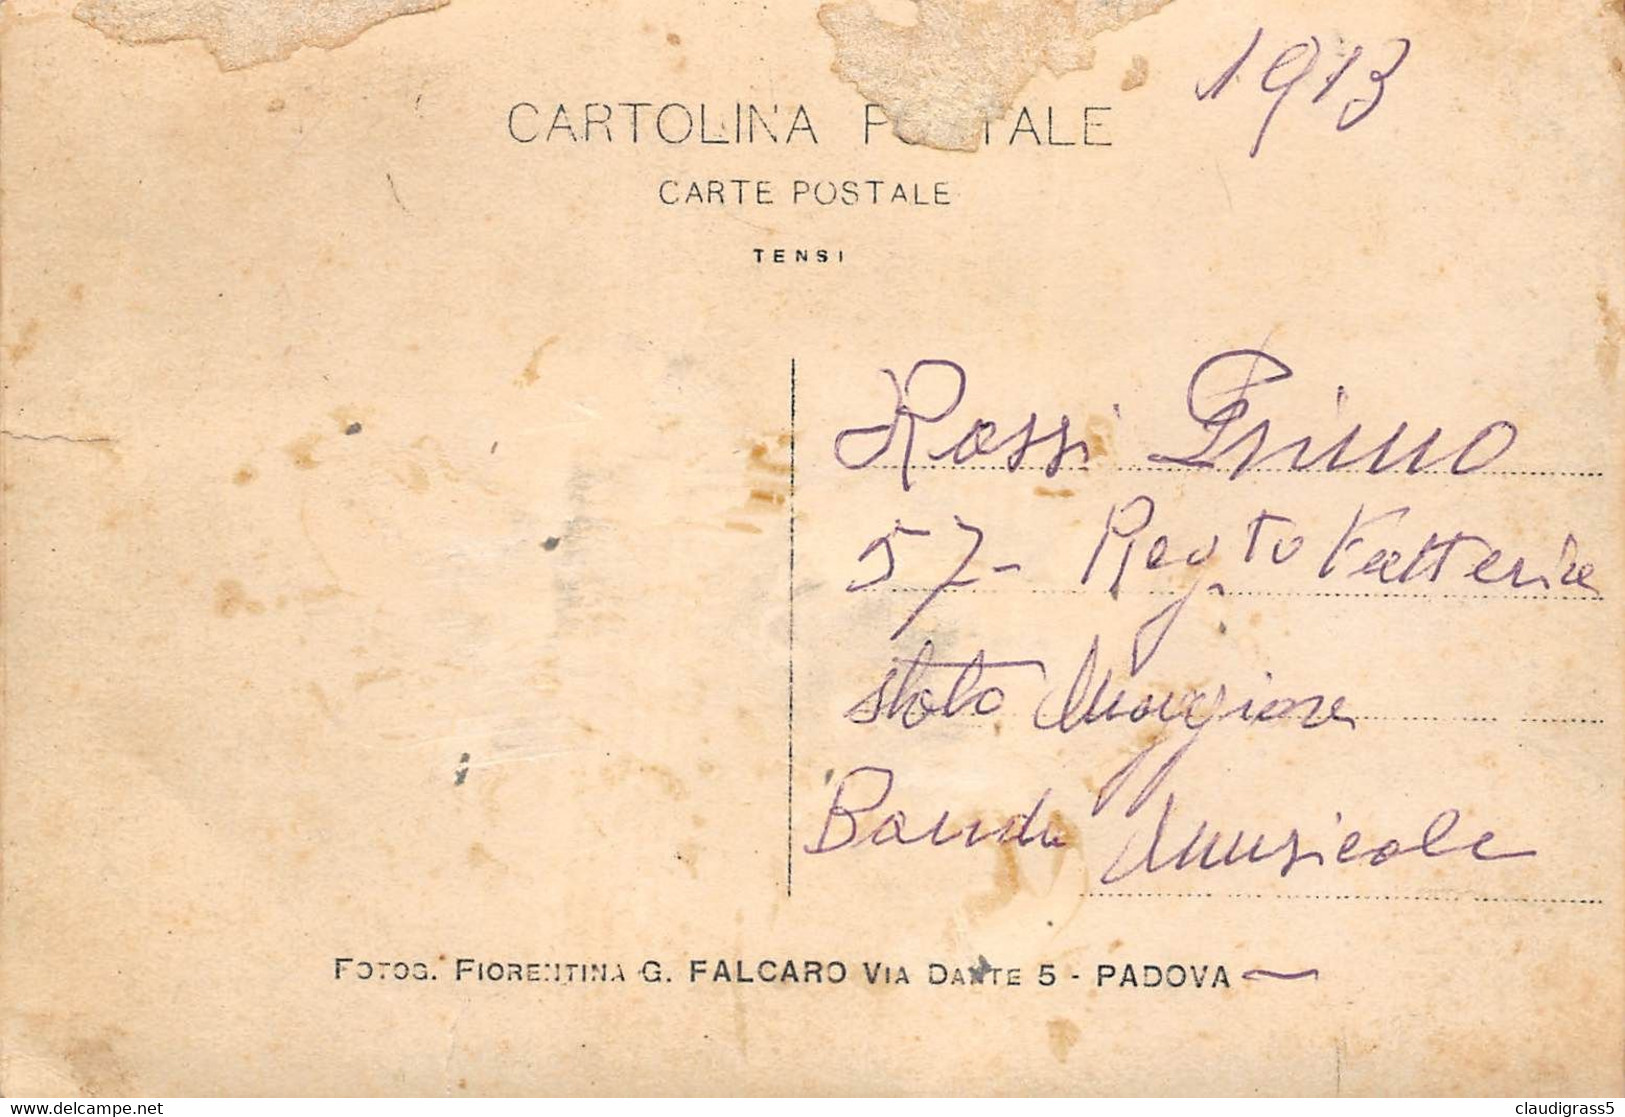 1913
CARTOLINA POSTALE
CARTE POSTALE
TENSI
Rossi Primo
57- Reg.to Fatteria
Stato Maggiore
Banda Musicale
FOTOG. FIORENTINA G. FALCARO VIA DANTE 5 - PADOVA
delcampe.net
claudigrass5